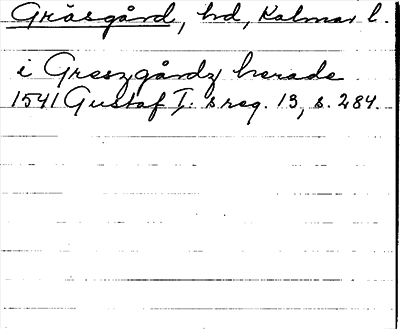 Gräsgård, hd, Kalmar l.
i Greszgårdz herade
1541 Gustaf I:s reg. 13, s. 284.